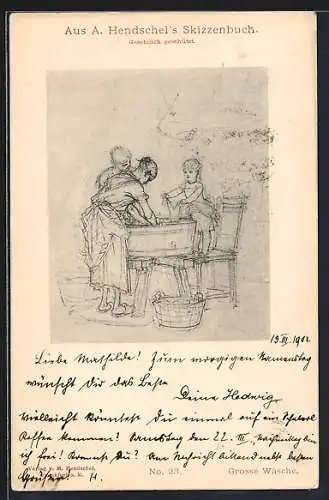 Aus A. Hendschel's Skizzenbuch.
Gesetzlich geschützt.
13. III. 1912
Liebe Mathilde! Zum morgigen Namenstag
wünscht Dir das Beste
Deine Hedwig
Vielleicht könntest Du einmal auf ein
Kaffee kommen? Samstag den 22. III. Nachmittag bin
ich frei! Kommst Du? Um Nachricht bittend nebst besten
Grüssen! H.
Verlag v. M. Hendschel,
No. 23.
Grosse Wäsche.